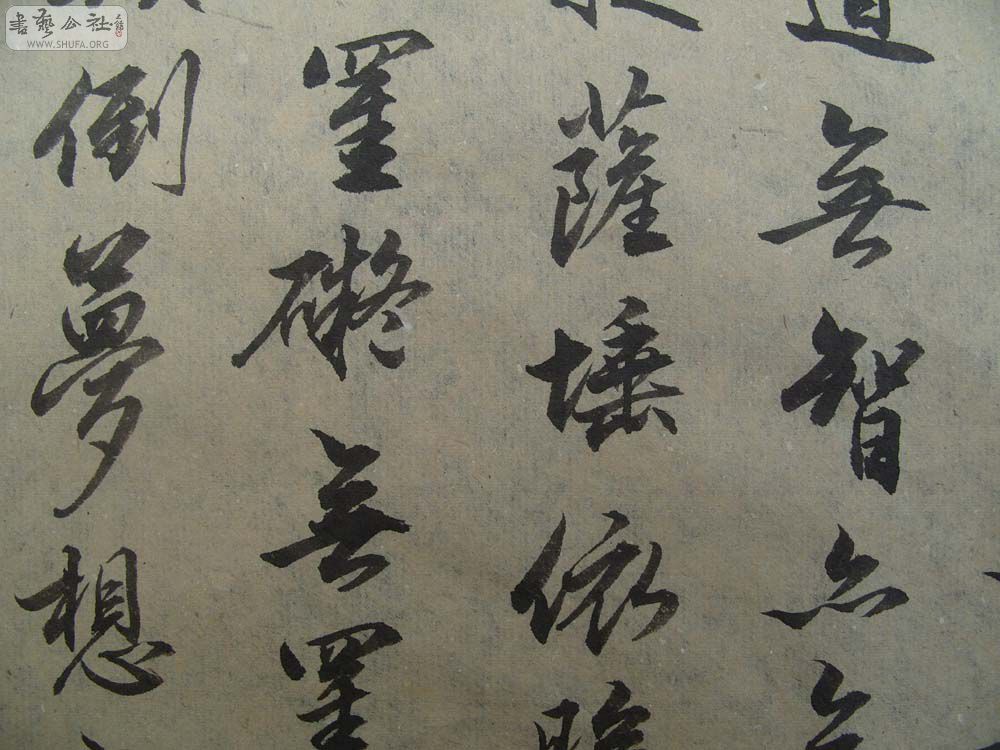 道無智亦無
薩埵依
罣礙無罣
倒夢想
書藝公社
WWW.SHUFA.ORG